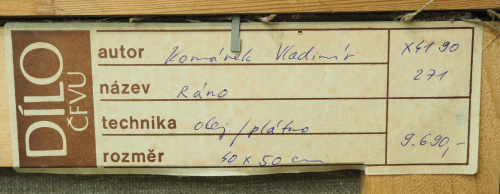 DÍLO ČFVU
autor Komárek Vladimír X4190
název Ráno 271
technika olej/plátno
rozměr 40 x 50 cm 9.690,-